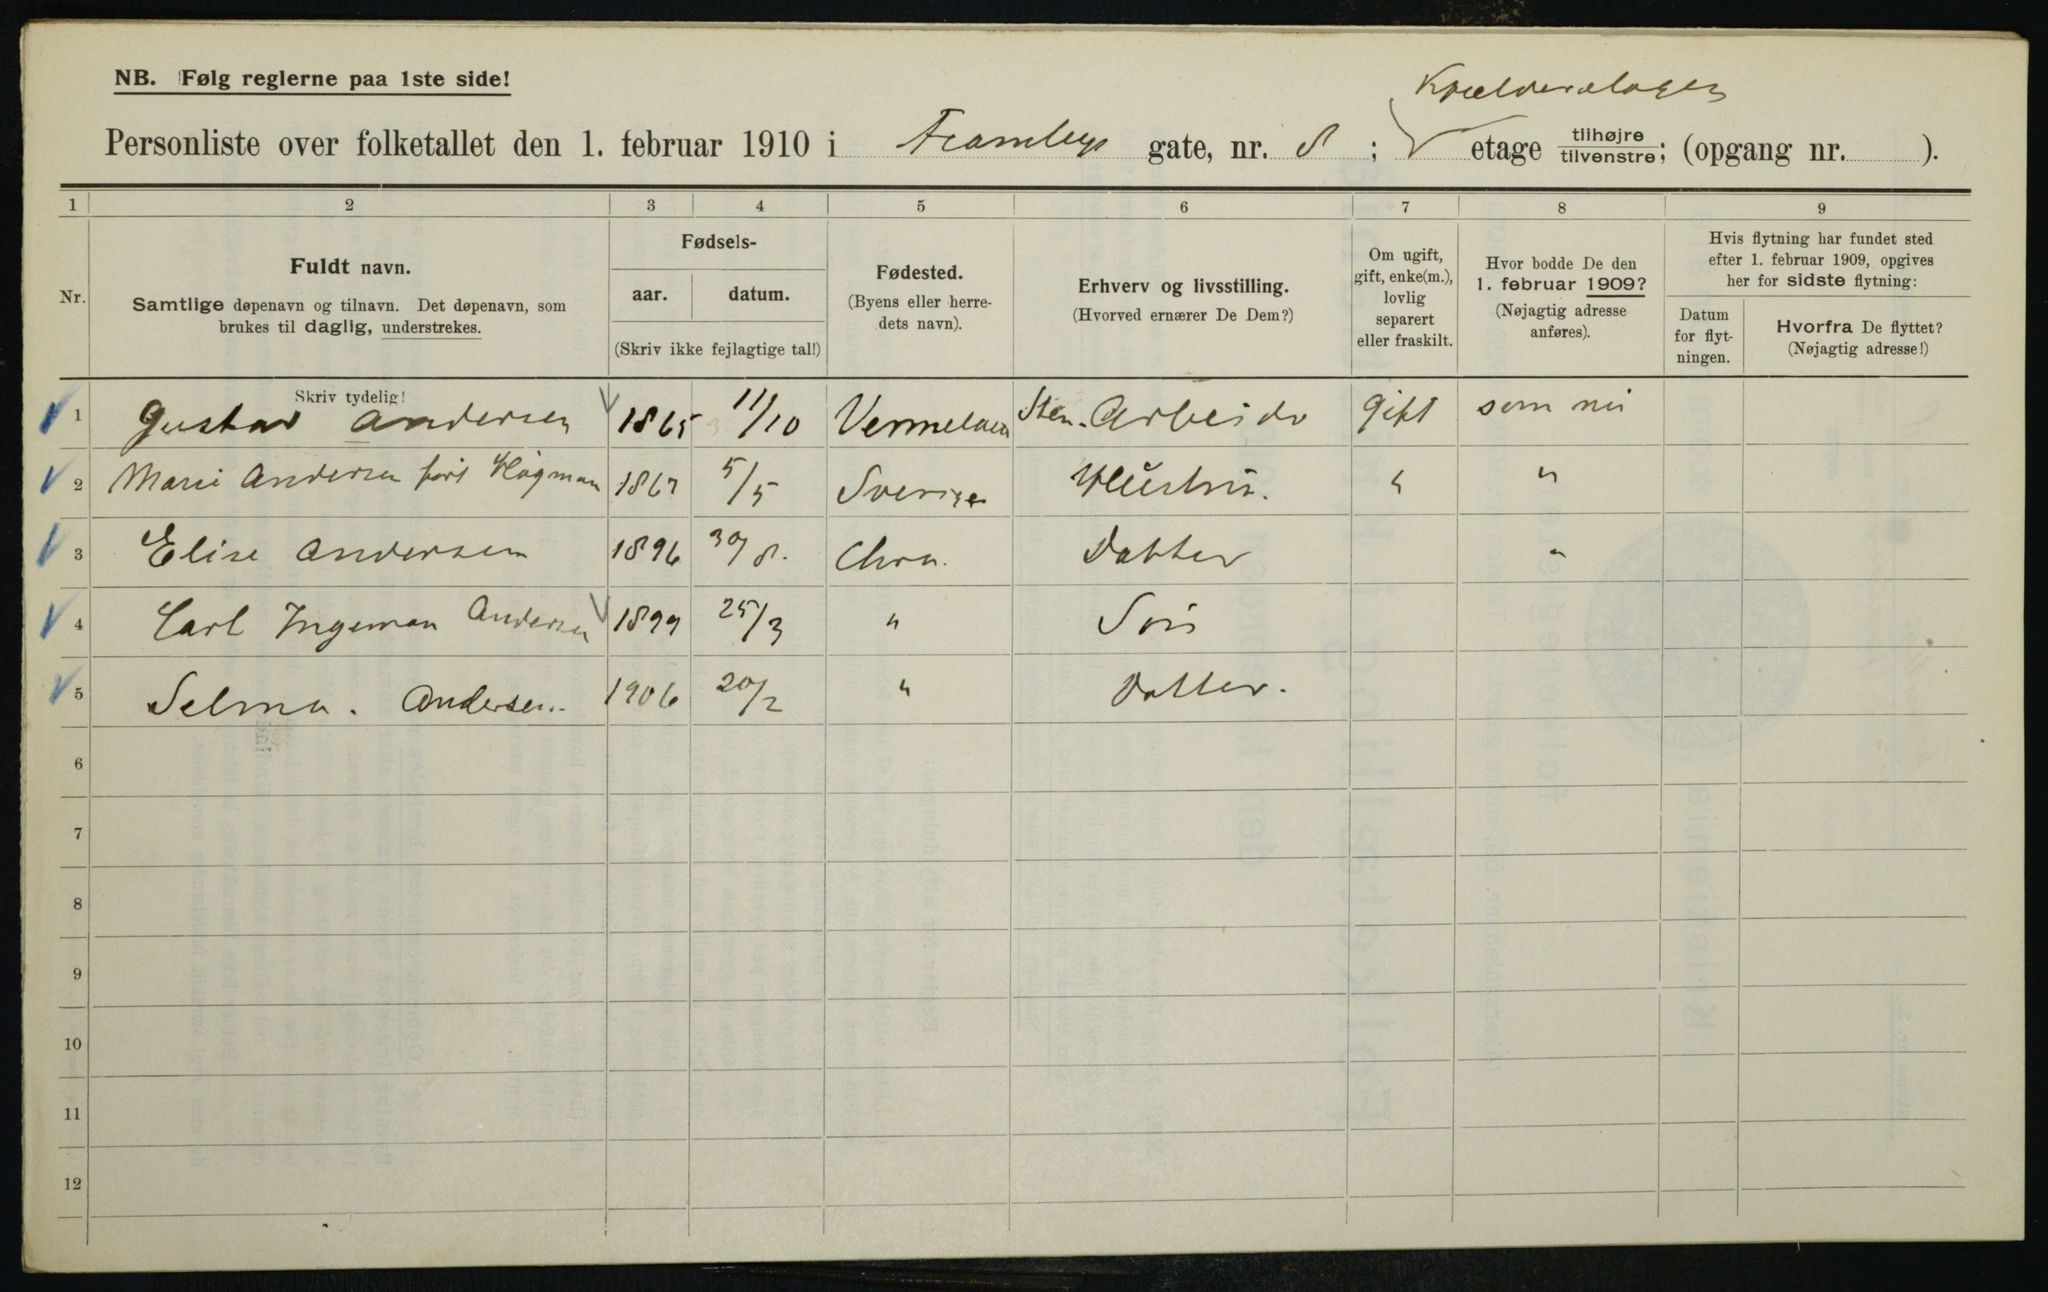 NB. Følg reglerne paa 1ste side!
Kjælderetagen
Personliste over folketallet den 1. februar 1910 i Framlegs gate, nr. 8; etage tilhøjre/tilvenstre; (opgang nr. ).
1 2 3 4 5 6 7 8 9
Nr.
Fuldt navn.
Samtlige døpenavn og tilnavn. Det døpenavn, som
brukes til daglig, understrekes.
Fødsels-
aar. datum.
(Skriv ikke fejlagtige tal!)
Fødested.
(Byens eller herre-
dets navn).
Erhverv og livsstilling.
(Hvorved ernærer De Dem?)
Om ugift,
gift, enke(m.),
lovlig
separert
eller fraskilt.
Hvor bodde De den
1. februar 1909?
(Nøjagtig adresse
anføres).
Hvis flytning har fundet sted
efter 1. februar 1909, opgives
her for sidste flytning:
Datum
for flyt-
ningen.
Hvorfra De flyttet?
(Nøjagtig adresse!)
Skriv tydelig!
1 Gustav Andersen 1865 11/10 Vermeland Sten. Arbeider gift som nu
2 Marie Andersen født Högman 1867 5/5 Sverige Hustru. " "
3 Elise Andersen 1896 30/8. Chra. Datter "
4 Carl Ingeman Andersen 1899 25/3 " Søn
5 Selma. Andersen. 1906 20/2 " Datter.
6
7
8
9
10
11
12